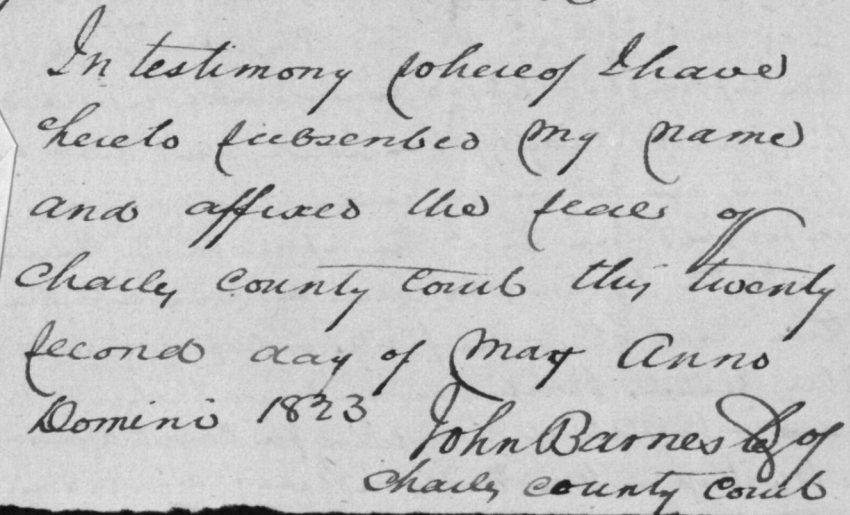 In testimony whereof I have
hereto subscribed my name
and affixed the seal of
Charles County Court this twenty
second day of May Anno
Domini 1823
John Barnes Clk of
Charles County Court